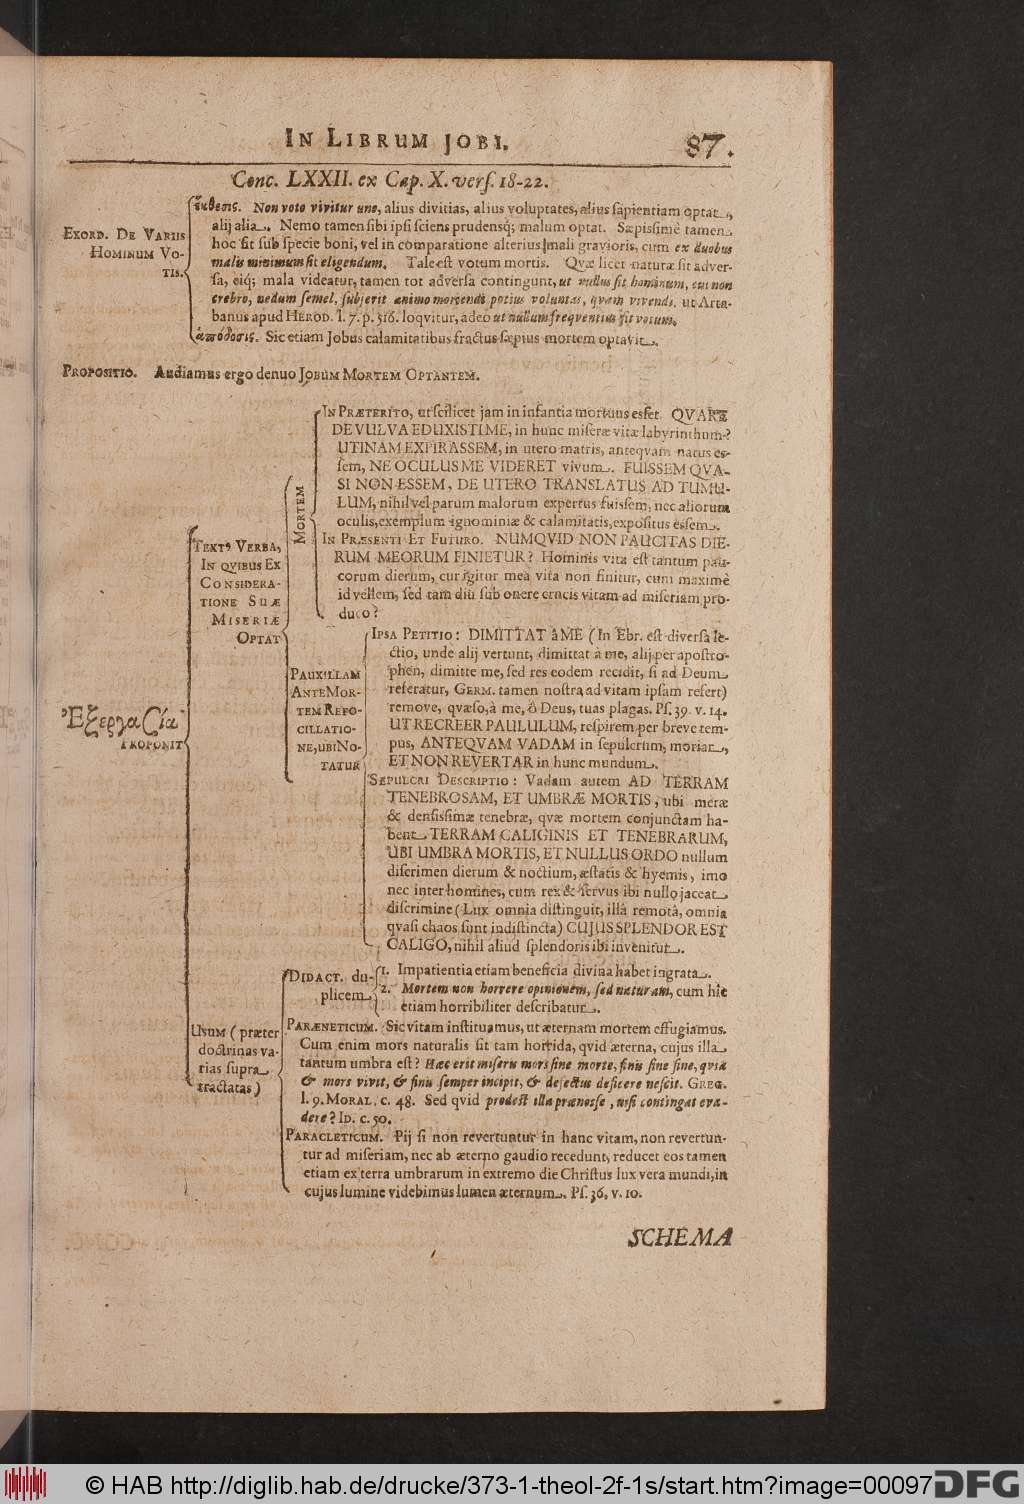 IN LIBRUM JOBI.
87.
Conc. LXXII. ex Cap. X. vers. 18-22.
EXORD. DE VARIIS
HOMINUM VO-
TIS.
ἔκθεσις. Non voto vivitur uno, alius divitias, alius voluptates, alius sapientiam optat,
alij alia. Nemo tamen sibi ipsi sciens prudensq́; malum optat. Sæpissimè tamen
hoc fit sub specie boni, vel in comparatione alterius mali gravioris, cum ex duobus
malis minimum sit eligendum. Tale est votum mortis. Qvæ licet naturæ sit adver-
sa, eiq́; mala videatur, tamen tot adversa contingunt, ut nullus sit hominum, cui non
crebro, nedum semel, subjerit animo moriendi potius voluntas, qvam vivendi, ut Arta-
banus apud HEROD. l. 7. p. 516. loqvitur, adeo ut nullum freqventius sit votum.
ἀπόδοσις. Sic etiam Jobus calamitatibus fractus sæpius mortem optavit.
PROPOSITIO. Audiamus ergo denuo JOBUM MORTEM OPTANTEM.
Ἐξεργασία
PROPONIT
TEXTꝰ VERBA,
IN QVIBUS EX
CONSIDERA-
TIONE SUÆ
MISERIÆ
OPTAT
MORTEM
IN PRÆTERITO, ut scilicet jam in infantia mortuus esset. QVARE
DE VULVA EDUXISTI ME, in hunc miseræ vitæ labyrinthum?
UTINAM EXPIRASSEM, in utero matris, anteqvam natus es-
sem, NE OCULUS ME VIDERET vivum. FUISSEM QVA-
SI NON ESSEM, DE UTERO TRANSLATUS AD TUMU-
LUM, nihil vel parum malorum expertus fuissem, nec aliorum
oculis, exemplum ignominiæ & calamitatis, expositus essem.
IN PRÆSENTI ET FUTURO. NUMQVID NON PAUCITAS DIE-
RUM MEORUM FINIETUR? Hominis vita est tantum pau-
corum dierum, cur igitur mea vita non finitur, cum maximè
id vellem, sed tam diu sub onere crucis vitam ad miseriam pro-
duco?
PAUXILLAM
ANTE MOR-
TEM REFO-
CILLATIO-
NE, UBI NO-
TATUR
IPSA PETITIO: DIMITTAT à ME (In Ebr. est diversa le-
ctio, unde alij vertunt, dimittat à me, alij per apostro-
phen, dimitte me, sed res eodem recidit, si ad Deum
referatur, GERM. tamen nostra ad vitam ipsam refert)
remove, qvæso, à me, ô Deus, tuas plagas. Ps. 39. v. 14.
UT RECREER PAULULUM, respirem per breve tem-
pus, ANTEQVAM VADAM in sepulcrum, moriar,
ET NON REVERTAR in hunc mundum.
SEPULCRI DESCRIPTIO: Vadam autem AD TERRAM
TENEBROSAM, ET UMBRÆ MORTIS, ubi meræ
& densissimæ tenebræ, qvæ mortem conjunctam ha-
bent TERRAM CALIGINIS ET TENEBRARUM,
UBI UMBRA MORTIS, ET NULLUS ORDO nullum
discrimen dierum & noctium, æstatis & hyemis, imo
nec inter homines, cum rex & servus ibi nullo jaceat
discrimine (Lux omnia distinguit, illâ remotâ, omnia
qvasi chaos sunt indistincta) CUJUS SPLENDOR EST
CALIGO, nihil aliud splendoris ibi invenitur.
USUM (præter
doctrinas va-
rias supra
tractatas)
DIDACT. du-
plicem
1. Impatientia etiam beneficia divina habet ingrata.
2. Mortem non horrere opinionem, sed naturam, cum hîc
etiam horribiliter describatur.
PARÆNETICUM. Sic vitam instituamus, ut æternam mortem effugiamus.
Cum enim mors naturalis sit tam horrida, qvid æterna, cujus illa
tantum umbra est? Hæc erit miseris mors sine morte, finis sine fine, qvia
& mors vivit, & finis semper incipit, & defectus deficere nescit. GREG.
l. 9. MORAL. c. 48. Sed qvid prodest illa prænosse, nisi contingat eva-
dere? ID. c. 50.
PARACLETICUM. Pij si non revertuntur in hanc vitam, non revertun-
tur ad miseriam, nec ab æterno gaudio recedunt, reducet eos tamen
etiam ex terra umbrarum in extremo die Christus lux vera mundi, in
cujus lumine videbimus lumen æternum. Ps. 36, v. 10.
SCHEMA
© HAB http://diglib.hab.de/drucke/373-1-theol-2f-1s/start.htm?image=00097
DFG